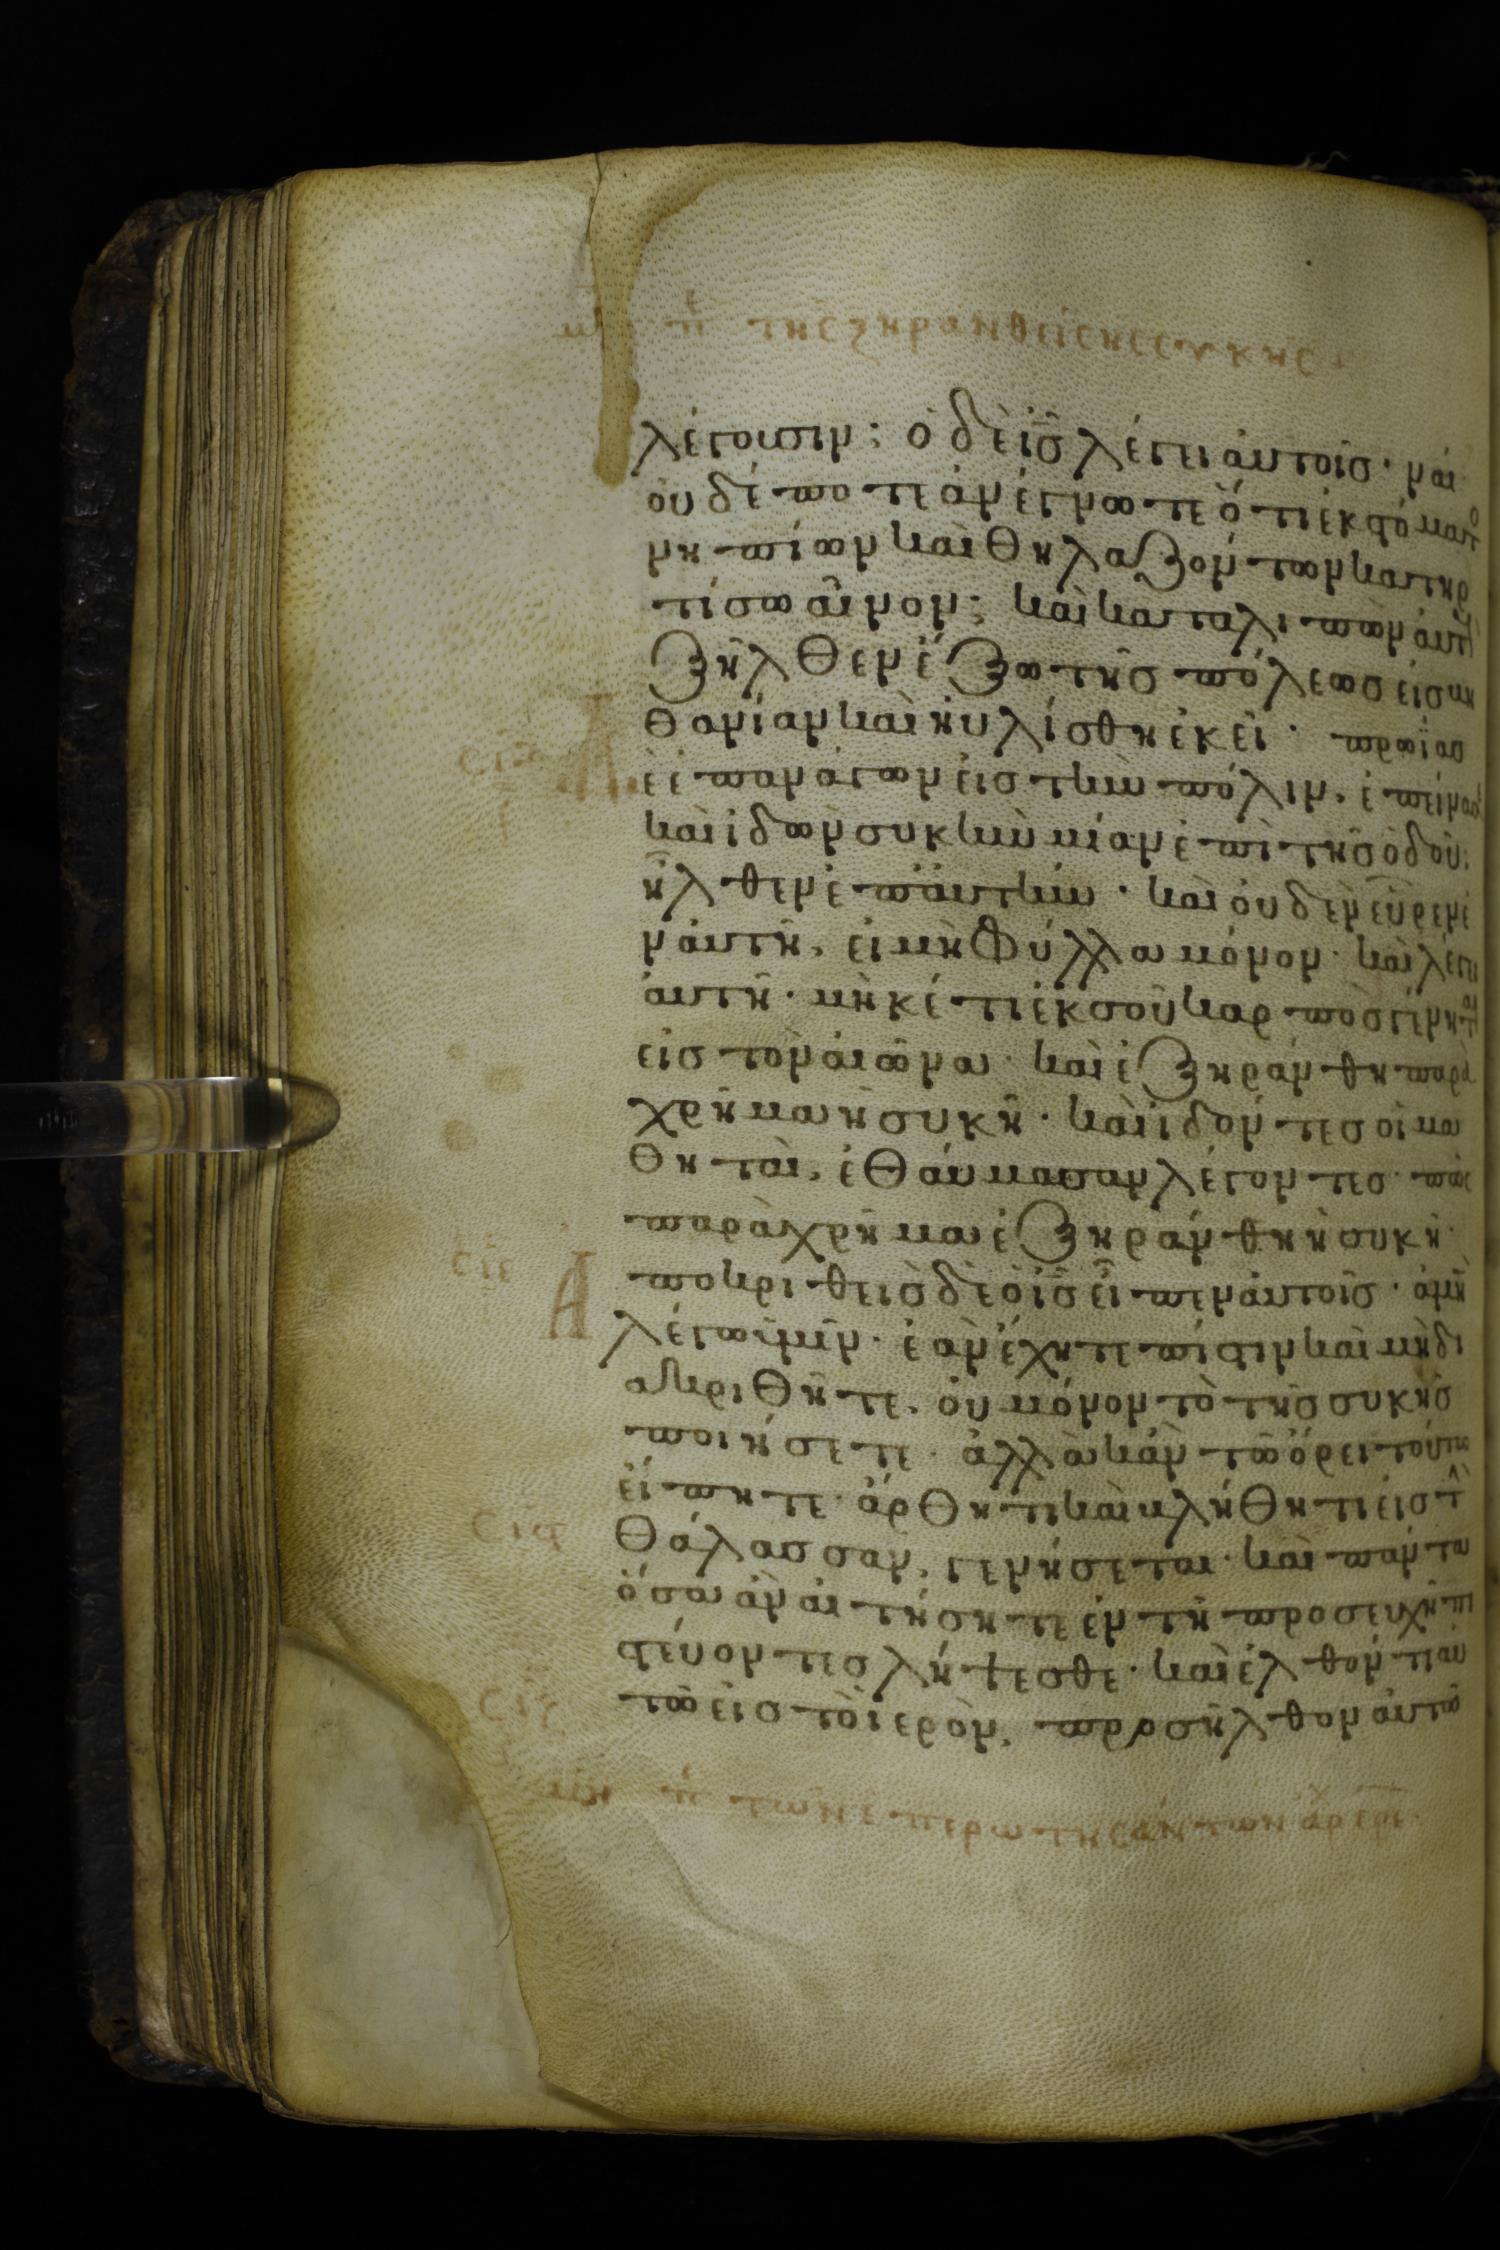 τῆς ξηρανθείσης συκῆς
λέγουσιν; ὁ δὲ ι̅ς̅ λέγει αὐτοῖς· ναί
οὐδέποτε ἀνέγνωτε ὅτι ἐκ στόματο
νηπίων καὶ θηλαζόντων κατηρ
τίσω αἶνον; καὶ καταλιπὼν αὐτοὺς
ἐξῆλθεν ἔξω τῆς πόλεως εἰς βη
θανίαν καὶ ηὐλίσθη ἐκεῖ· πρωΐας
ἐπανάγων εἰς τὴν πόλιν, ἐπείνασε
καὶ ἰδὼν συκὴν μίαν ἐπὶ τῆς ὁδοῦ,
ἦλθεν ἐπ' αὐτήν· καὶ οὐδὲν εὗρεν ἐ
ν αὐτῇ, εἰ μὴ φύλλα μόνον· καὶ λέγει
αὐτῇ· μηκέτι ἐκ σοῦ καρπὸς γένητ
εἰς τὸν αἰῶνα· καὶ ἐξηράνθη παρα
χρῆμα ἡ συκῆ· καὶ ἰδόντες οἱ μα
θηταὶ, ἐθαύμασαν λέγοντες· πῶς
παραχρῆμα ἐξηράνθη ἡ συκῆ·
Ἀποκριθεὶς δὲ ὁ ι̅ς̅ εἶπεν αὐτοῖς· ἀμὴν
λέγω ὑμῖν· ἐὰν ἔχητε πίστιν καὶ μὴ δι
ακριθῆτε, οὐ μόνον τὸ τῆς συκῆς
ποιήσετε· ἀλλὰ κἂν τῷ ὄρει τούτω
εἴπητε· ἄρθητι καὶ βλήθητι εἰς τὴν
θάλασσαν, γενήσεται· καὶ πάντα
ὅσα ἂν αἰτήσητε ἐν τῇ προσευχῇ πι
στεύοντες λήψεσθε· καὶ ἐλθόντι αὐ
τῷ εἰς τὸ ἱερὸν, προσῆλθον αὐτῷ
τῶν ἐπερωτησάντων ἀρχιερε